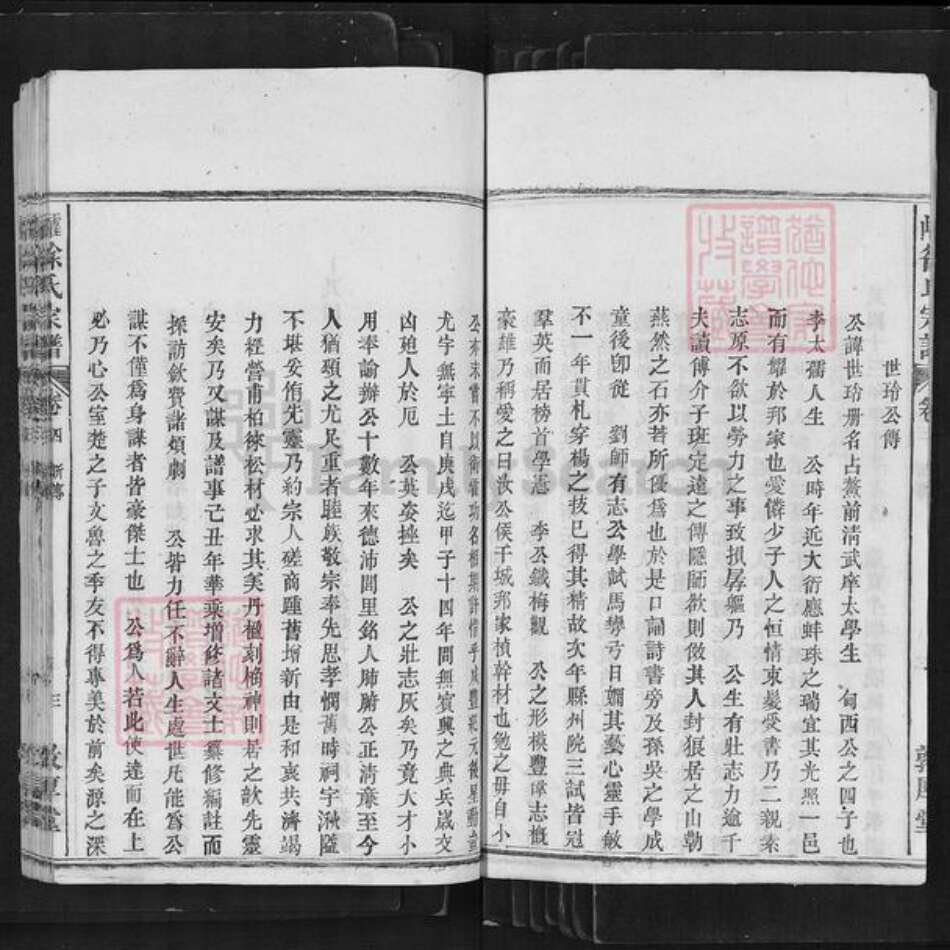 世玲公傳
公諱世玲册名占鰲前清武庠太學生 甸西公之四子也
李太孺人生 公時年近大衍應蚌珠之瑞宜其光照一邑
而有耀於邦家也愛憐少子人之恒情束髮受書乃二親素
志原不欲以勞力之事致損孱軀乃 公生有壯志力逾千
夫讀傅介子班定遠之傳隱師欲則傚其人封狼居之山勒
燕然之石亦若所優爲也於是口誦詩書旁及孫吳之學成
童後卽從 劉師有志公學試馬彎弓日嫺其藝心靈手敏
不一年貫札穿楊之技已得其精故次年縣州院三試皆冠
羣英而居榜首學憲 李公鐵梅觀 公之形模豐暐志槪
豪雄乃稱愛之曰汝公侯干城邦家楨幹材也勉之毋自小
尤宇無寧土自庚戌迄甲子十四年間無賓興之典兵歲交
凶廹人於厄 公英姿挫矣 公之壯志灰矣乃竟大才小
用奉諭辦公十數年來德沛閭里銘人肺腑公正清廉至今
人猶頌之尤足重者睦族敬宗奉先思孝憫舊時祠宇湫隘
不堪妥侑先靈乃約宗人磋商踵舊增新由是和衷共濟竭
力經營甫柏徠松材必求其美丹楹刻桷神則居之歆先靈
安矣乃又謀及譜事己丑年華乘增修諸文士纂修編註而
採訪歛費諸煩劇 公皆力任不辭人生處世凡能爲公
謀不僅爲身謀者皆豪傑士也 公爲人若此使達而在上
必乃心公室楚之子文魯之季友不得專美於前矣源之深
徐氏宗譜
卷四
新傳
三
敦厚堂